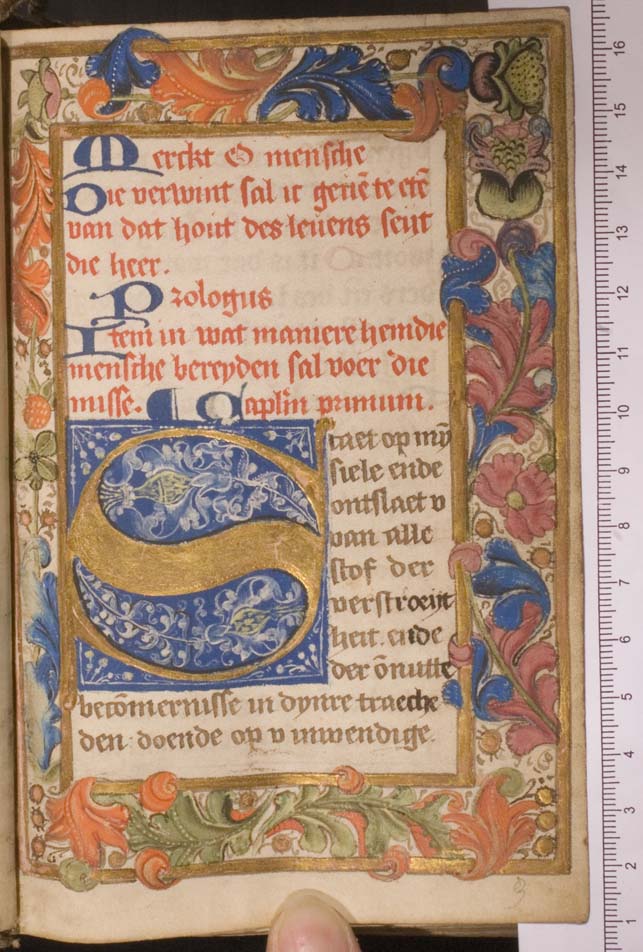 Merckt O mensche
Die verwint sal ic geuē te etē
van dat hout des leuens seit
die heer.
Prologus
Item in wat maniere hem die
mensche bereyden sal voer die
misse. Caplm primum.
Staet op mÿ
siele ende
ontslaet v
van alle
stof der
verstroeyt
heit. ende
der ōnutte
becōmernisse in dynre traeche
den doende op v inwendige.
3
16
15
14
13
12
11
10
9
8
7
6
5
4
3
2
1